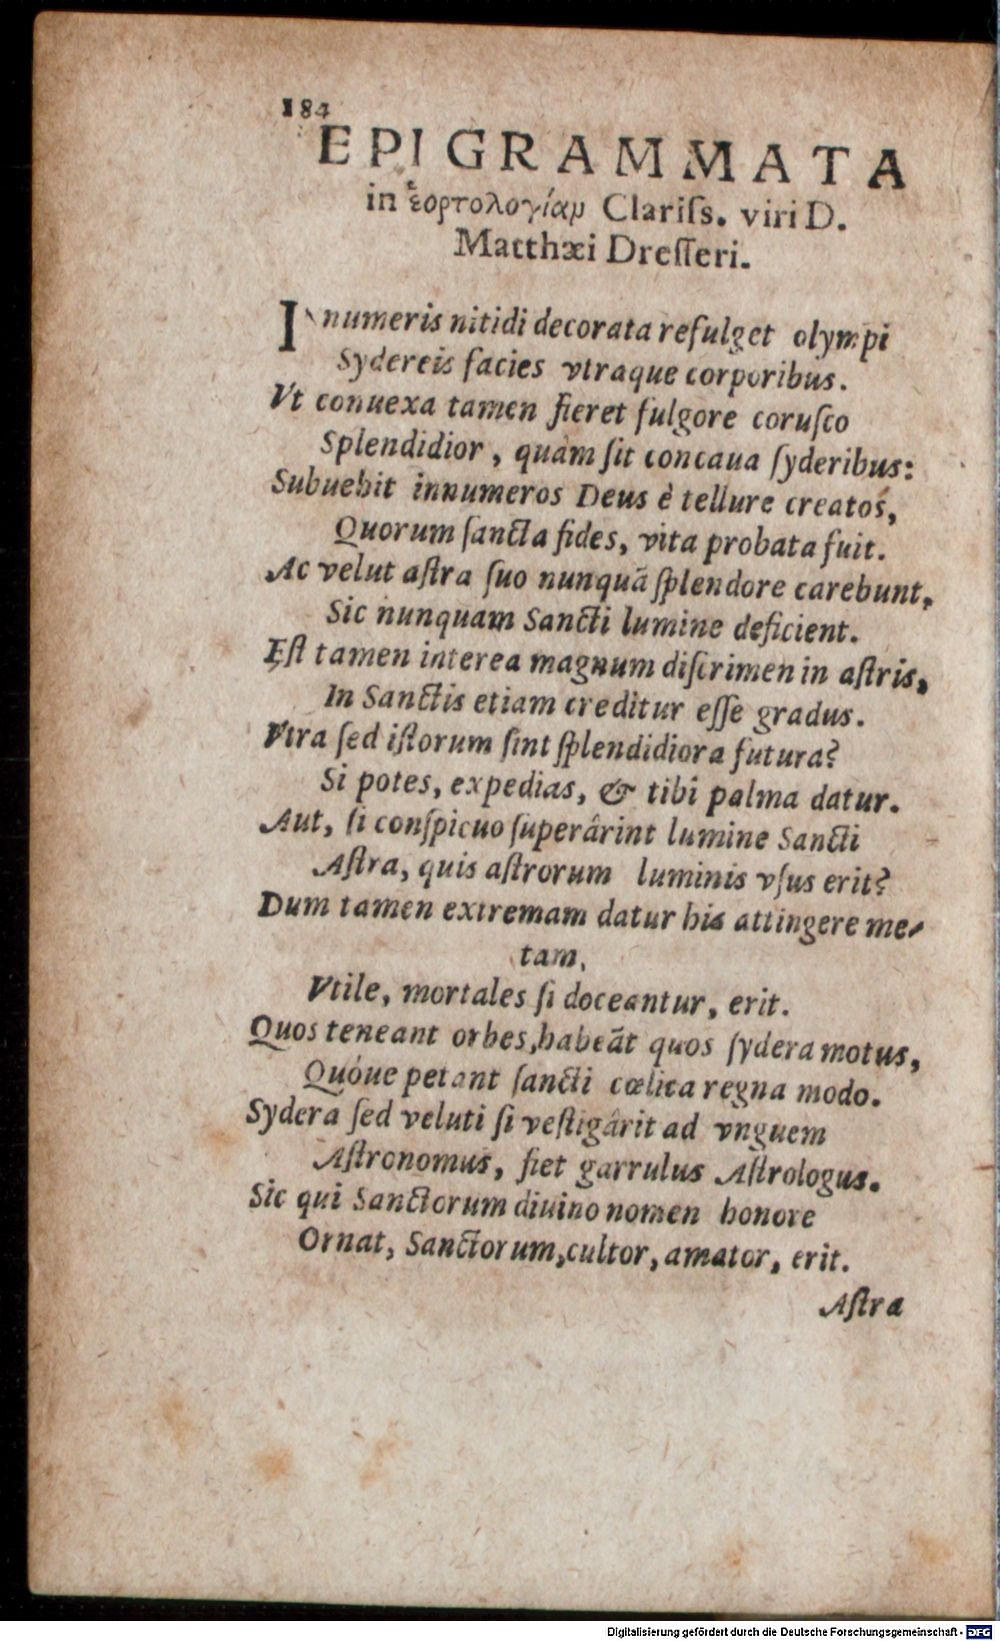 184
EPIGRAMMATA
in ἑορτολογίαμ Clariſs. viri D.
Matthæi Dreſſeri.
Innumeris nitidi decorata refulget olympi
Sydereis facies vtraque corporibus.
Vt conuexa tamen fieret fulgore coruſco
Splendidior, quàm ſit concaua ſyderibus:
Subuehit innumeros Deus è tellure creatos,
Quorum ſancta fides, vita probata fuit.
Ac velut aſtra ſuo nunquã ſplendore carebunt,
Sic nunquam Sancti lumine deficient.
Eſt tamen interea magnum diſcrimen in aſtris,
In Sanctis etiam creditur eſſe gradus.
Vtra ſed iſtorum ſint ſplendidiora futura?
Si potes, expedias, & tibi palma datur.
Aut, ſi conſpicuo ſuperârint lumine Sancti
Aſtra, quis aſtrorum luminis vſus erit?
Dum tamen extremam datur his attingere me-
tam,
Vtile, mortales ſi doceantur, erit.
Quos teneant orbes, habeãt quos ſydera motus,
Quóue petant ſancti cœlica regna modo.
Sydera ſed veluti ſi veſtigârit ad vnguem
Aſtronomus, fiet garrulus Aſtrologus.
Sic qui Sanctorum diuino nomen honore
Ornat, Sanctorum, cultor, amator, erit.
Aſtra
Digitalisierung gefördert durch die Deutsche Forschungsgemeinschaft - DFG